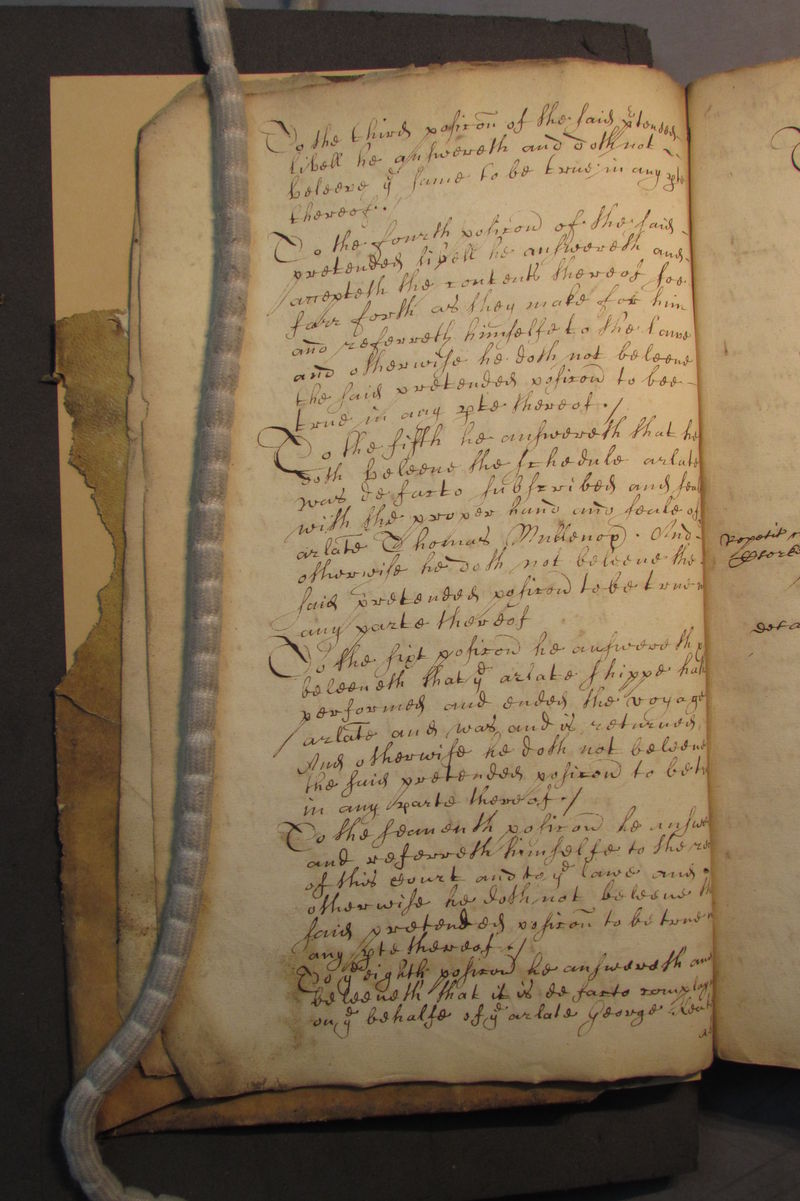 To the third posicon of the said ptended
libell he answereth and doth not
beleeve ye same to be true in any pte
thereof./
To the fourth posicon of the said
pretended libell he answereth and
accepteth the contents thereof soe
farr forth as they make for him
and referreth himselfe to the lawe
and otherwise he doth not beleeve
the said pretended posicon to bee
true in any pte thereof./
To the fifth he answereth that he
doth beleeve the schedule arlate
was de facto subscribed and
with the proper hand and seale of
arlate Thomas Mullenox. And
otherwise he doth not beleeve the
said pretended posicon to be true
any parte thereof
To the sixt posicon he answereth
beleeveth that ye arlate shippe hath
performed and ended the voyage
arlate and was and is returned
And otherwise he doth not beleeve
the said pretended posicon to be
in any parte thereof./
To the seaventh posicon he
and referreth himselfe to the
of this Court and to ye lawe and
otherwise he doth not beleeve
said pretended posicon to be true
any pte thereof./
To ye eighth posicon he answereth and
beleeveth that it is de facto
on ye behalfe of ye arlate George